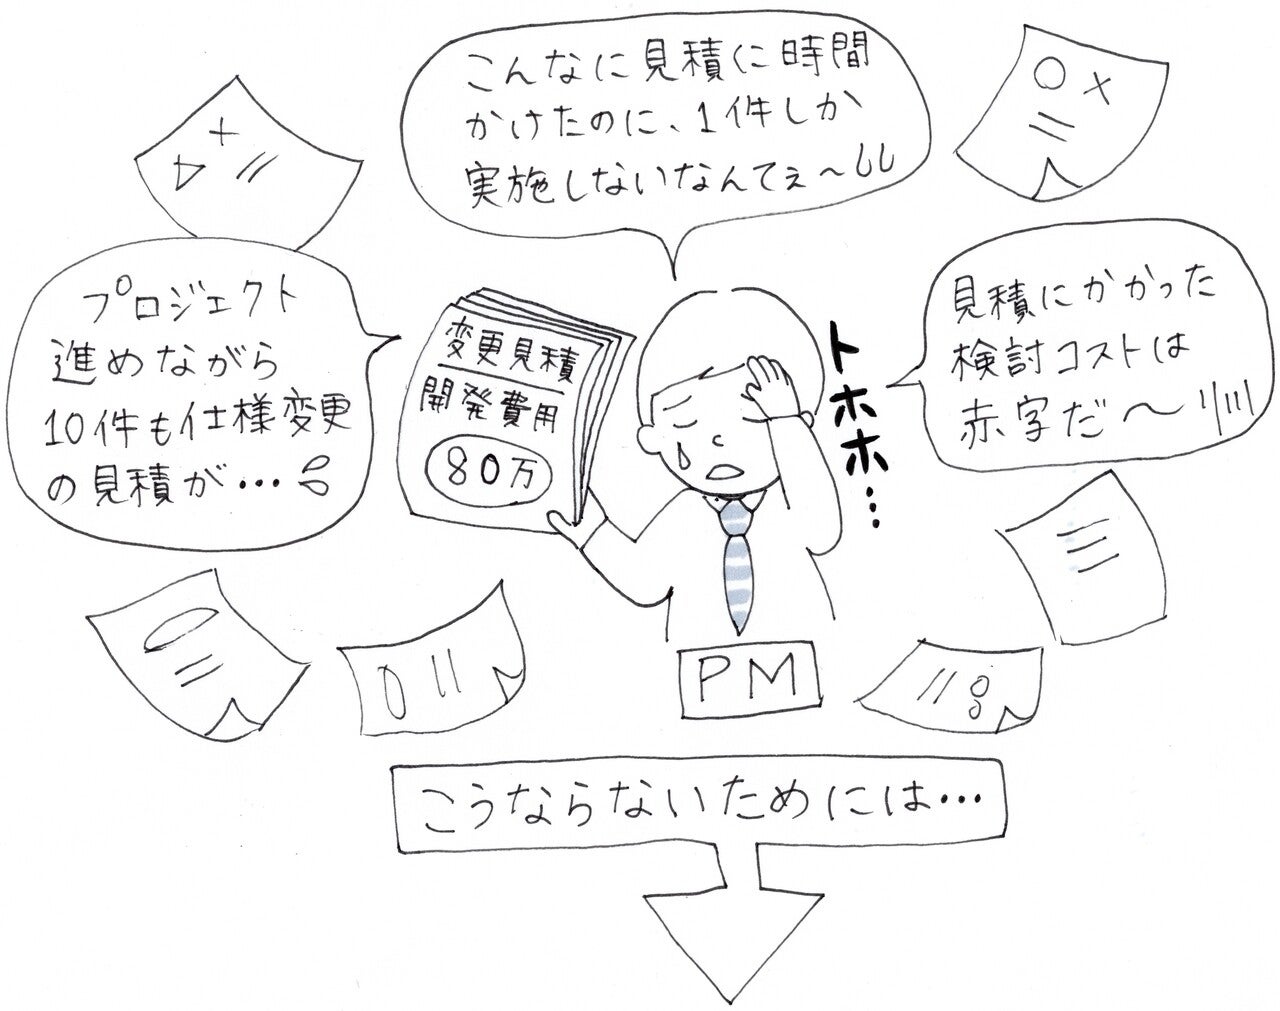 こんなに見積に時間
かけたのに、1件しか
実施しないなんてぇ〜
プロジェクト
進めながら
10件も仕様変更
の見積が…
変更見積
開発費用
80万
トホホ…
見積にかかった
検討コストは
赤字だ〜
PM
こうならないためには…